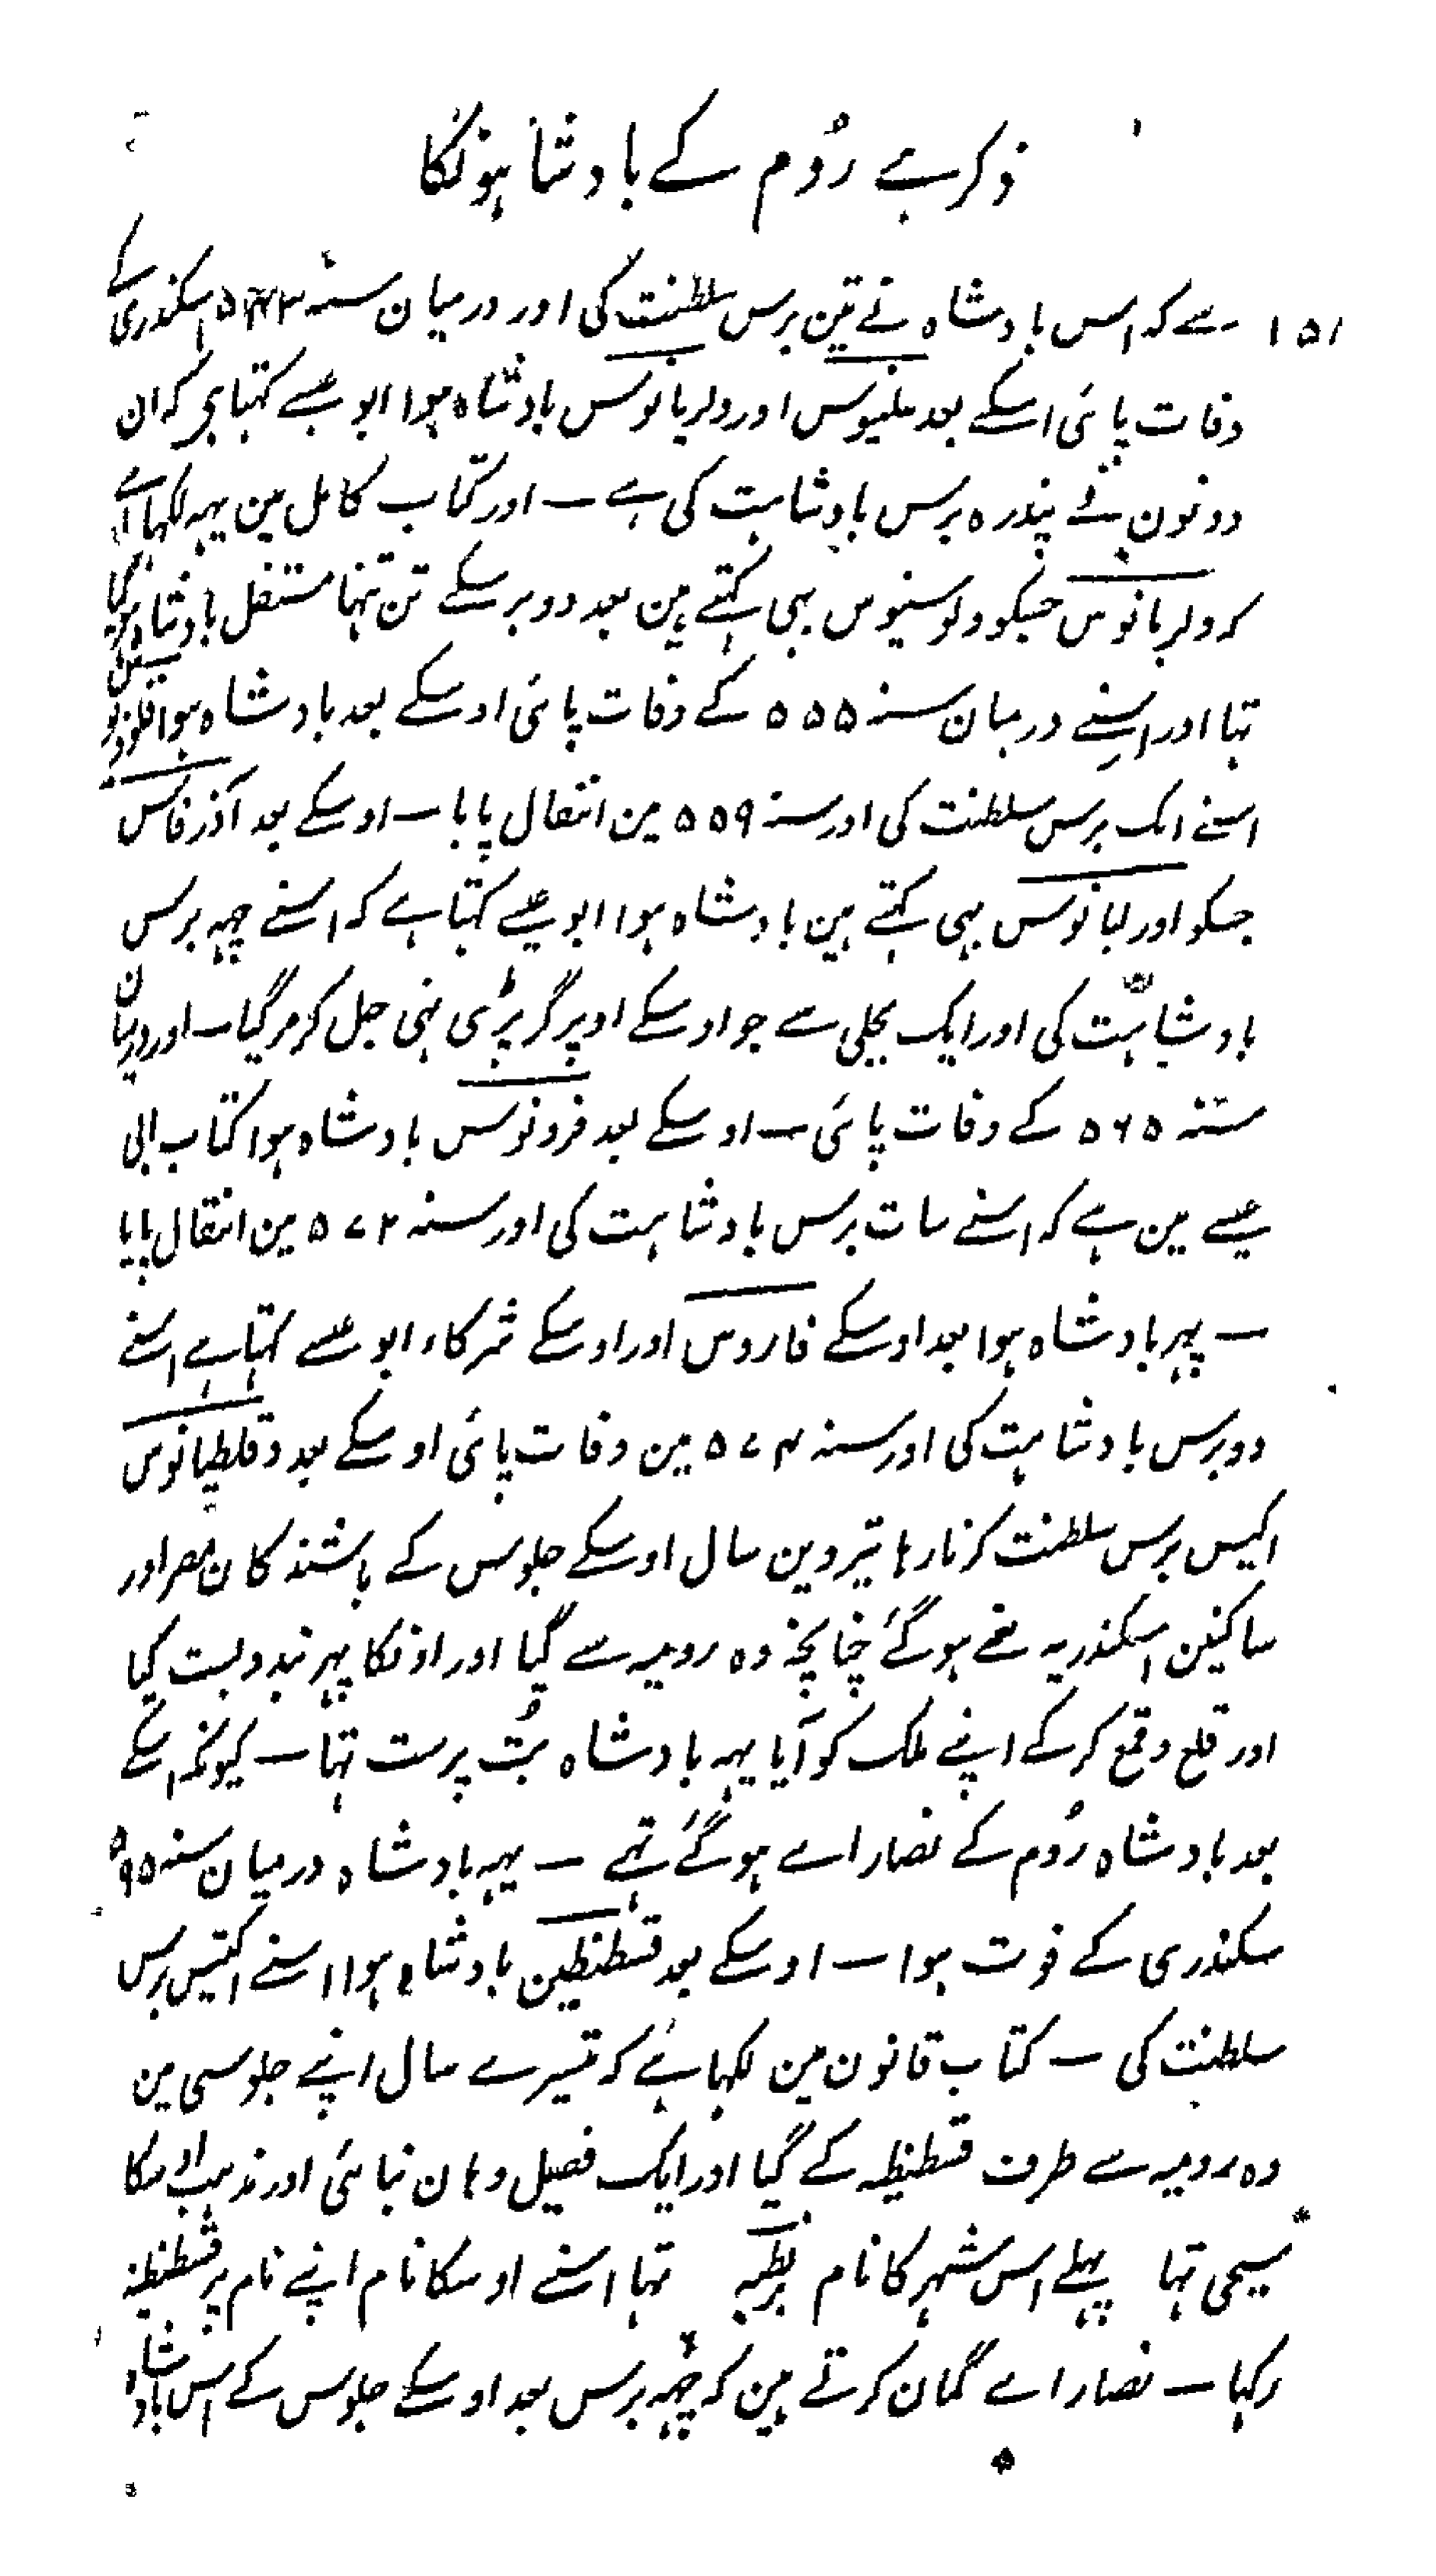 ذکر ہے رُوم کے بادشاہونکا
١٥١ سے کہ اس بادشاہ نے تین برس سلطنت کی اور درمیان سنہ اسکندری کے
وفات پائی اسکے بعد علینوس اور ولریانوس بادشاہ ہوا ابو عیسے کہتا ہی کہ ان
دونون نے پندرہ برس بادشاہت کی ہے ــ اور کتاب کامل مین یہہ لکہا ہے
کہ ولریانوس جسکو ولوسنیوس بہی کہتے ہین بعد دو برسکے تن تنہا مستقل بادشاہ ہو گیا
تہا اور اسنے درمیان سنہ ٥٥٥ کے وفات پائی اوسکے بعد بادشاہ ہوا
اسنے ایک برس سلطنت کی اور سنہ ٥٥٩ مین انتقال پایا ــ اوسکے بعد آذرفاس
جسکو اورلیانوس بہی کہتے ہین بادشاہ ہوا ابو عیسے کہتا ہے کہ اسنے چہہ برس
بادشاہت کی اور ایک بجلی سے جو اوسکے اوپر گر پڑی تہی جل کر مر گیا ــ اور درمیان
سنہ ٥٦٥ کے وفات پائی ــ اوسکے بعد فرونوس بادشاہ ہوا کتاب ابی
عیسے مین ہے کہ اسنے سات برس بادشاہت کی اور سنہ ٥٧٢ مین انتقال پایا
ــ پہر بادشاہ ہوا بعد اوسکے فاروس اور اوسکے شرکاء ابو عیسے کہتا ہے اسنے
دو برس بادشاہت کی اور سنہ ٥٧٤ مین وفات پائی اوسکے بعد دقلطیانوس
اکیس برس سلطنت کرتا رہا تیروین سال اوسکے جلوس کے باشندکان مصر اور
ساکنین اسکندریہ سے ہو گئے چنانچہ وہ رومیہ سے گیا اور اونکا پہر بندوبست کیا
اور قلع وقمع کر کے اپنے ملک کو آیا یہہ بادشاہ بُت پرست تہا ــ کیونکہ اسکے
بعد بادشاہ رُوم کے نصاراے ہو گئے تہے ــ یہہ بادشاہ درمیان سنہ ٥٩٥
سکندری کے فوت ہوا ــ اوسکے بعد قسطنطین بادشاہ ہوا اسنے اکتیس برس
سلطنت کی ــ کتاب قانون مین لکہا ہے کہ تیسرے سال اپنے جلوسی مین
وہ رومیہ سے طرف قسطنطیہ کے گیا اور ایک فصیل وہان بنائی اور مذہب اوسکا
مسیحی تہا پہلے اس شہر کا نام بزنطیہ تہا اسنے اوسکا نام اپنے نام پر قسطنطنیہ
رکہا ــ نصاراے گمان کرتے ہین کہ چہہ برس بعد اوسکے جلوس کے اس بادشاہ